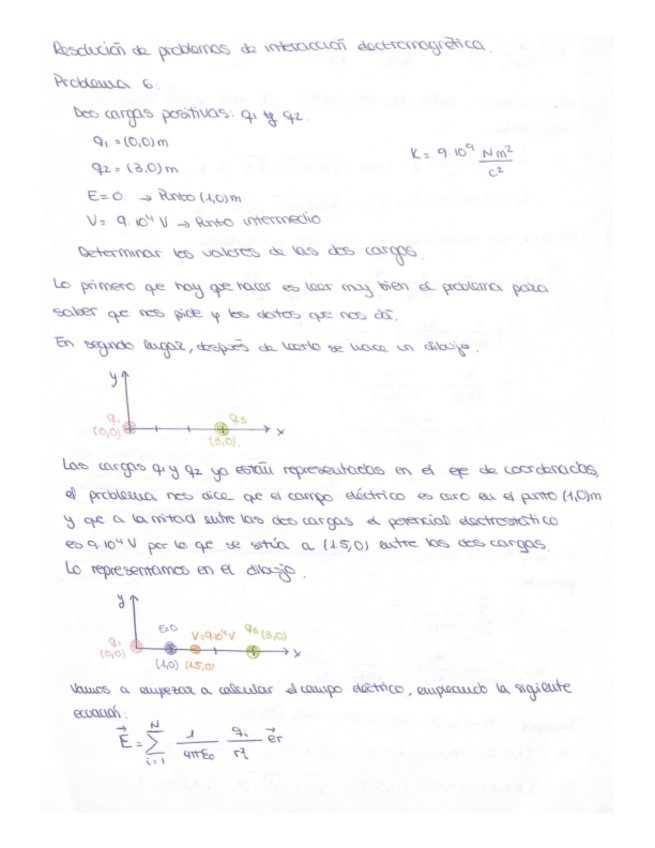 Resolución de problemas de interacción electromagnética.
Problema 6:
Dos cargas positivas: q1 y q2.
q1 = (0,0) m
q2 = (3,0) m
K = 9·10⁹ Nm²/C²
E=0 → Punto (1,0)m
V= 9·10⁴ V → Punto intermedio
Determinar los valores de las dos cargas.
Lo primero que hay que hacer es leer muy bien el problema para
saber que nos pide y los datos que nos dá.
En segundo lugar, después de leerlo se hace un dibujo.
y
q1
(0,0)
q2
(3,0).
x
Las cargas q1 y q2 ya están representadas en el eje de coordenadas,
el problema nos dice que el campo eléctrico es cero en el punto (1,0)m
y que a la mitad entre las dos cargas el potencial electrostático
es 9·10⁴ V por lo que se sitúa a (1.5,0) entre las dos cargas.
Lo representamos en el dibujo.
y
E=0
V=9·10⁴V
q2 (3,0)
q1
(0,0)
x
(1,0) (1.5,0)
Vamos a empezar a calcular el campo eléctrico, empleando la siguiente
ecuación:
E⃗ = ∑ᵢ₌₁ᴺ 1/4πε₀ qi/ri² e⃗r